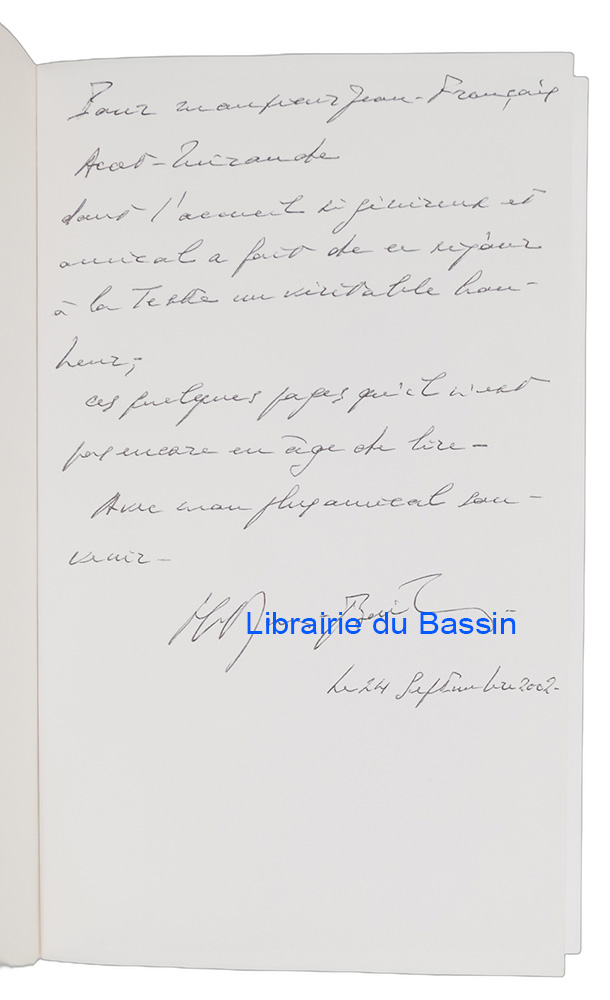 Pour monsieur Jean-François
Acot-Mirande
dont l'accueil si généreux et
amical a fait de ce séjour
à la Teste un véritable bon-
heur,
ces quelques pages qu'il n'est
pas encore en âge de lire -
Avec mon plus amical sou-
venir -
Librairie du Bassin
le 24 Septembre 2002 -